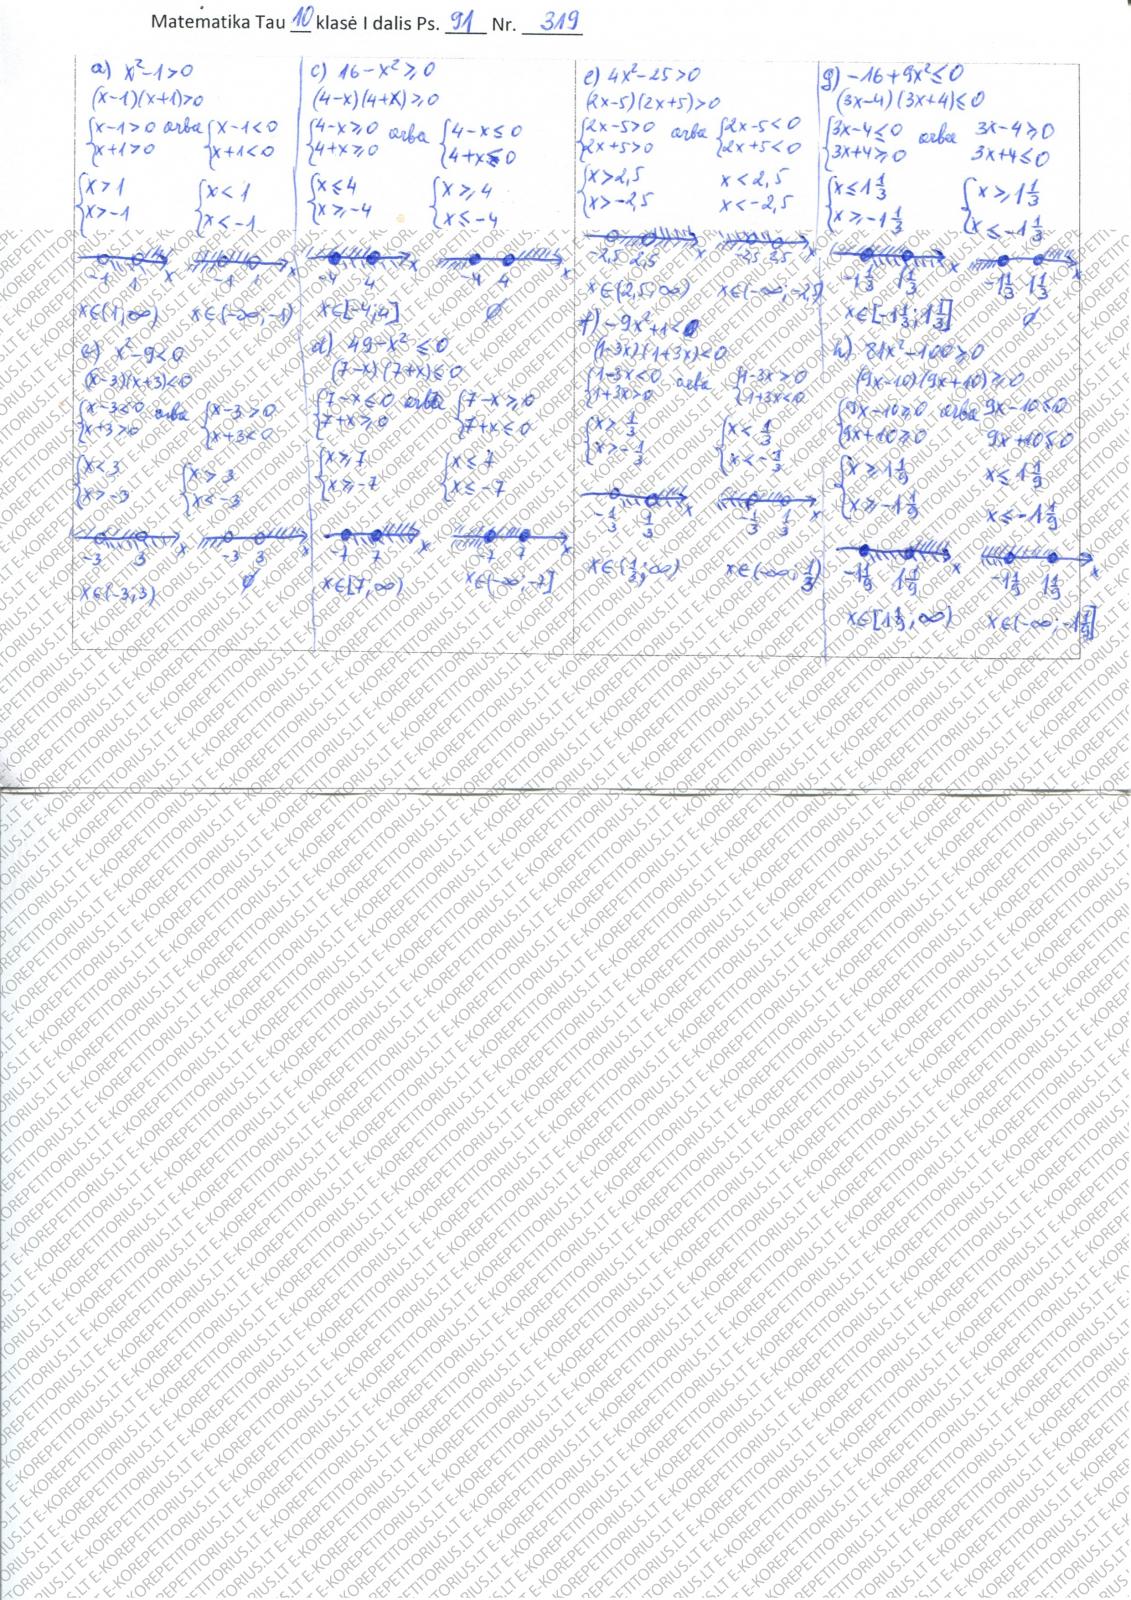 Matematika Tau 10 klasė I dalis Ps. 91 Nr. 319
a) x²-1>0
(x-1)(x+1)>0
{x-1>0 arba {x-1<0
x+1>0 x+1<0
{x>1 {x<1
x>-1 x<-1
-1 1 x -1 1 x
x∈(1;∞) x∈(-∞;-1)
x²-9<0
(x-3)(x+3)<0
{x-3<0 arba {x-3>0
x+3>0 x+3<0
{x<3 {x>3
x>-3 x<-3
-3 3 x -3 3 x
x∈(-3;3) ∅
c) 16-x²≥0
(4-x)(4+x)≥0
{4-x≥0 arba {4-x≤0
4+x≥0 4+x≤0
{x≤4 {x≥4
x≥-4 x≤-4
-4 4 x -4 4 x
x∈[-4;4] ∅
d) 49-x²≤0
(7-x)(7+x)≤0
{7-x≤0 arba {7-x≥0
7+x≥0 7+x≤0
{x≥7 {x≤7
x≥-7 x≤-7
-7 7 x -7 7 x
x∈[7;∞) x∈(-∞;-7]
e) 4x²-25>0
(2x-5)(2x+5)>0
{2x-5>0 arba {2x-5<0
2x+5>0 2x+5<0
{x>2,5 x<2,5
x>-2,5 x<-2,5
-2,5 2,5 x
x∈(2,5;∞) x∈(-∞;-2,5)
f) -9x²+1<0
(1-3x)(1+3x)<0
{1-3x<0 arba {1-3x>0
1+3x>0 1+3x<0
{x>1/3 {x<1/3
x>-1/3 x<-1/3
-1/3 1/3 x -1/3 1/3 x
x∈(1/3;∞)
g) -16+9x²≤0
(3x-4)(3x+4)≤0
{3x-4≤0 arba 3x-4≥0
3x+4≥0 3x+4≤0
{x≤1 1/3 {x≥1 1/3
x≥-1 1/3 x≤-1 1/3
-1 1/3 1 1/3 x -1 1/3 1 1/3 x
x∈[-1 1/3;1 1/3] ∅
h) 81x²-100≥0
(9x-10)(9x+10)≥0
{9x-10≥0 arba 9x-10≤0
9x+10≥0 9x+10≤0
{x≥1 1/9 x≤1 1/9
x≥-1 1/9 x≤-1 1/9
-1 1/9 1 1/9 x -1 1/9 1 1/9 x
x∈[1 1/9;∞) x∈(-∞;-1 1/9]
E-KOREPETITORIUS.LT